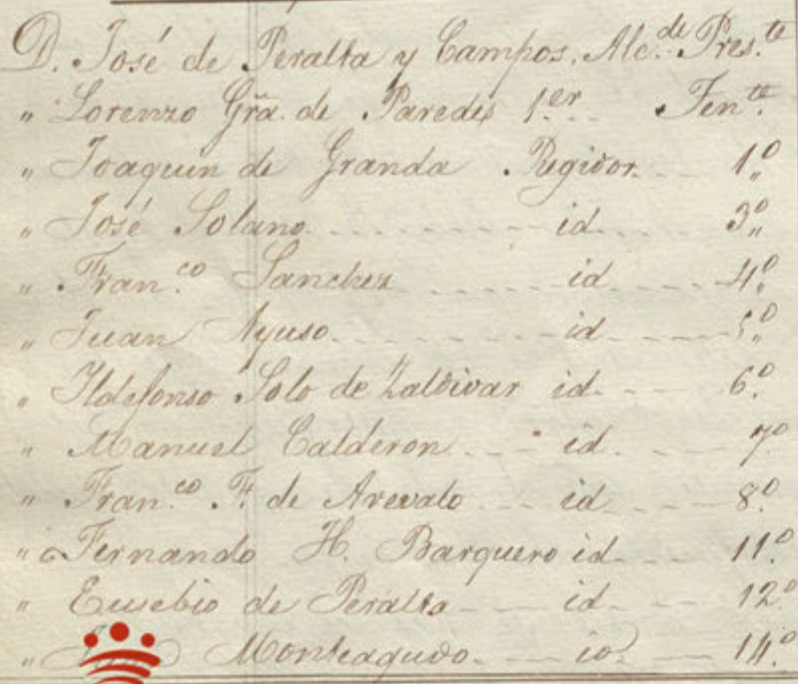 D. José de Peralta y Campos, Alc.de Pres.te
" Lorenzo Gra. de Paredes 1er Ten.te
" Joaquin de Granda Regidor 1º
" José Solano id 3º
" Fran.co Sanchez id 4º
" Juan Ayuso id 5º
" Ildefonso Solo de Zaldivar id 6º
" Manuel Calderon id 7º
" Fran.co F. de Arevalo id 8º
" Fernando H. Barquero id 11º
" Eusebio de Peralta id 12º
" Monteagudo id 14º